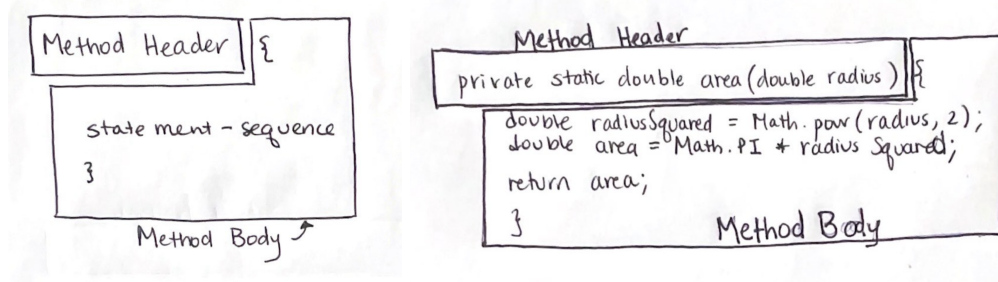 Method Header {
statement - sequence
}
Method Body
Method Header
private static double area (double radius) {
double radiusSquared = Math.pow (radius, 2);
double area = Math.PI * radius Squared;
return area;
}
Method Body